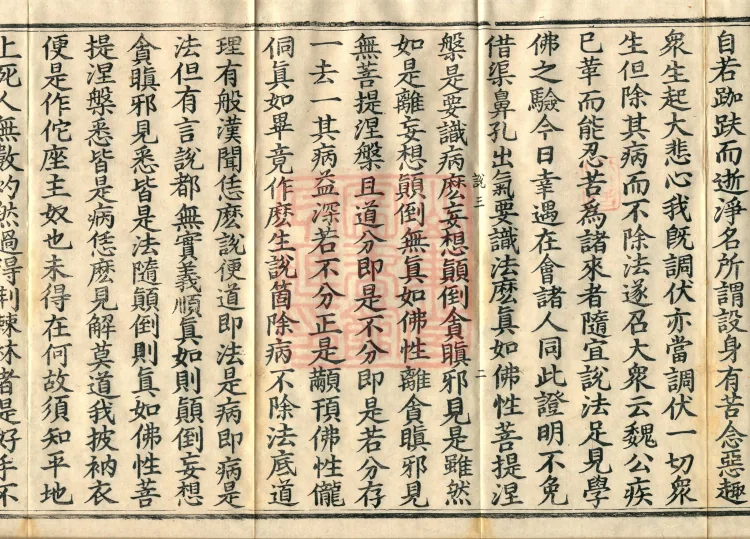 自若跏趺而逝淨名所謂設身有苦念惡趣
衆生起大悲心我旣調伏亦當調伏一切衆
生但除其病而不除法遂召大衆云魏公疾
已革而能忍苦爲諸來者隨宜說法足見學
佛之驗今日幸遇在會諸人同此證明不免
借渠鼻孔出氣要識法麽眞如佛性菩提涅
說三
二
槃是要識病麽妄想顚倒貪瞋邪見是雖然
如是離妄想顚倒無眞如佛性離貪瞋邪見
無菩提涅槃且道分即是不分即是若分存
一去一其病益深若不分正是顢頇佛性儱
侗眞如畢竟作麽生說箇除病不除法底道
理有般漢聞恁麽說便道即法是病即病是
法但有言說都無實義順眞如則顚倒妄想
貪瞋邪見悉皆是法隨顚倒則眞如佛性菩
提涅槃悉皆是病恁麽見解莫道我披衲衣
便是作佗座主奴也未得在何故須知平地
上死人無數灼然過得荆棘林者是好手不